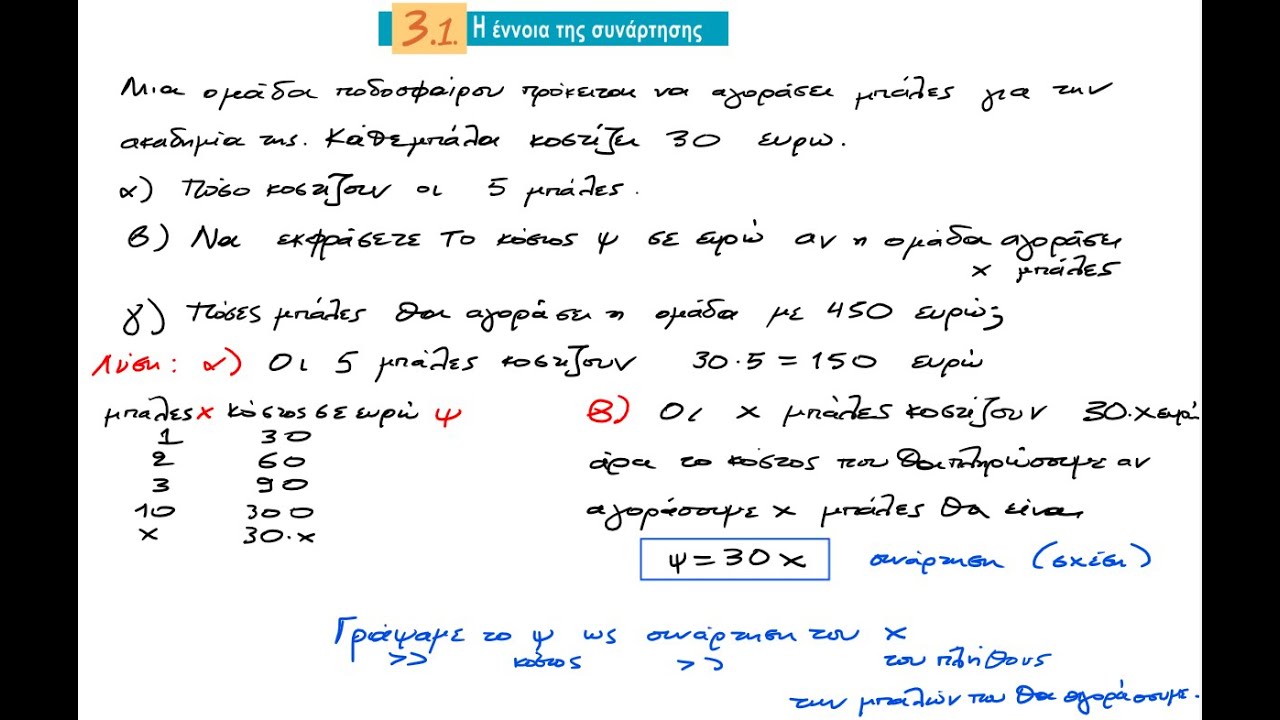 3.1. Η έννοια της συνάρτησης
Μια ομάδα ποδοσφαίρου πρόκειται να αγοράσει μπάλες για την
ακαδημία της. Κάθε μπάλα κοστίζει 30 ευρω.
α) Πόσο κοστίζουν οι 5 μπάλες.
β) Να εκφράσετε το κόστος ψ σε ευρώ αν η ομάδα αγοράσει
x μπάλες
γ) Πόσες μπάλες θα αγοράσει η ομάδα με 450 ευρώ;
Λύση: α) Οι 5 μπάλες κοστίζουν 30·5=150 ευρώ
μπαλες x κόστος σε ευρώ ψ
1 30
2 60
3 90
10 300
x 30·x
β) Οι x μπάλες κοστίζουν 30·x ευρώ
άρα το κόστος που θα πληρώσουμε αν
αγοράσουμε x μπάλες θα είναι
ψ=30x συνάρτηση (σχέση)
Γράψαμε το ψ ως συνάρτηση του x
>> κόστος >> του πλήθους
των μπαλών που θα αγοράσουμε.